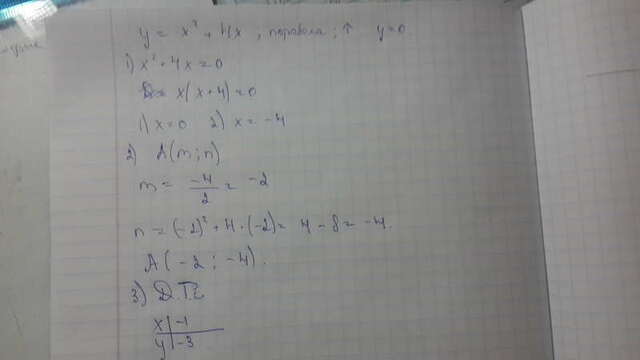 y = x² + 4x, парабола; ↑ y=0
1) x² + 4x = 0
x(x+4)=0
1) x=0 2) x = -4
2) A(m; n)
m = -4/2 = -2
n = (-2)² + 4·(-2) = 4 - 8 = -4.
A(-2; -4).
3) Д.Т.
x | -1
y | -3